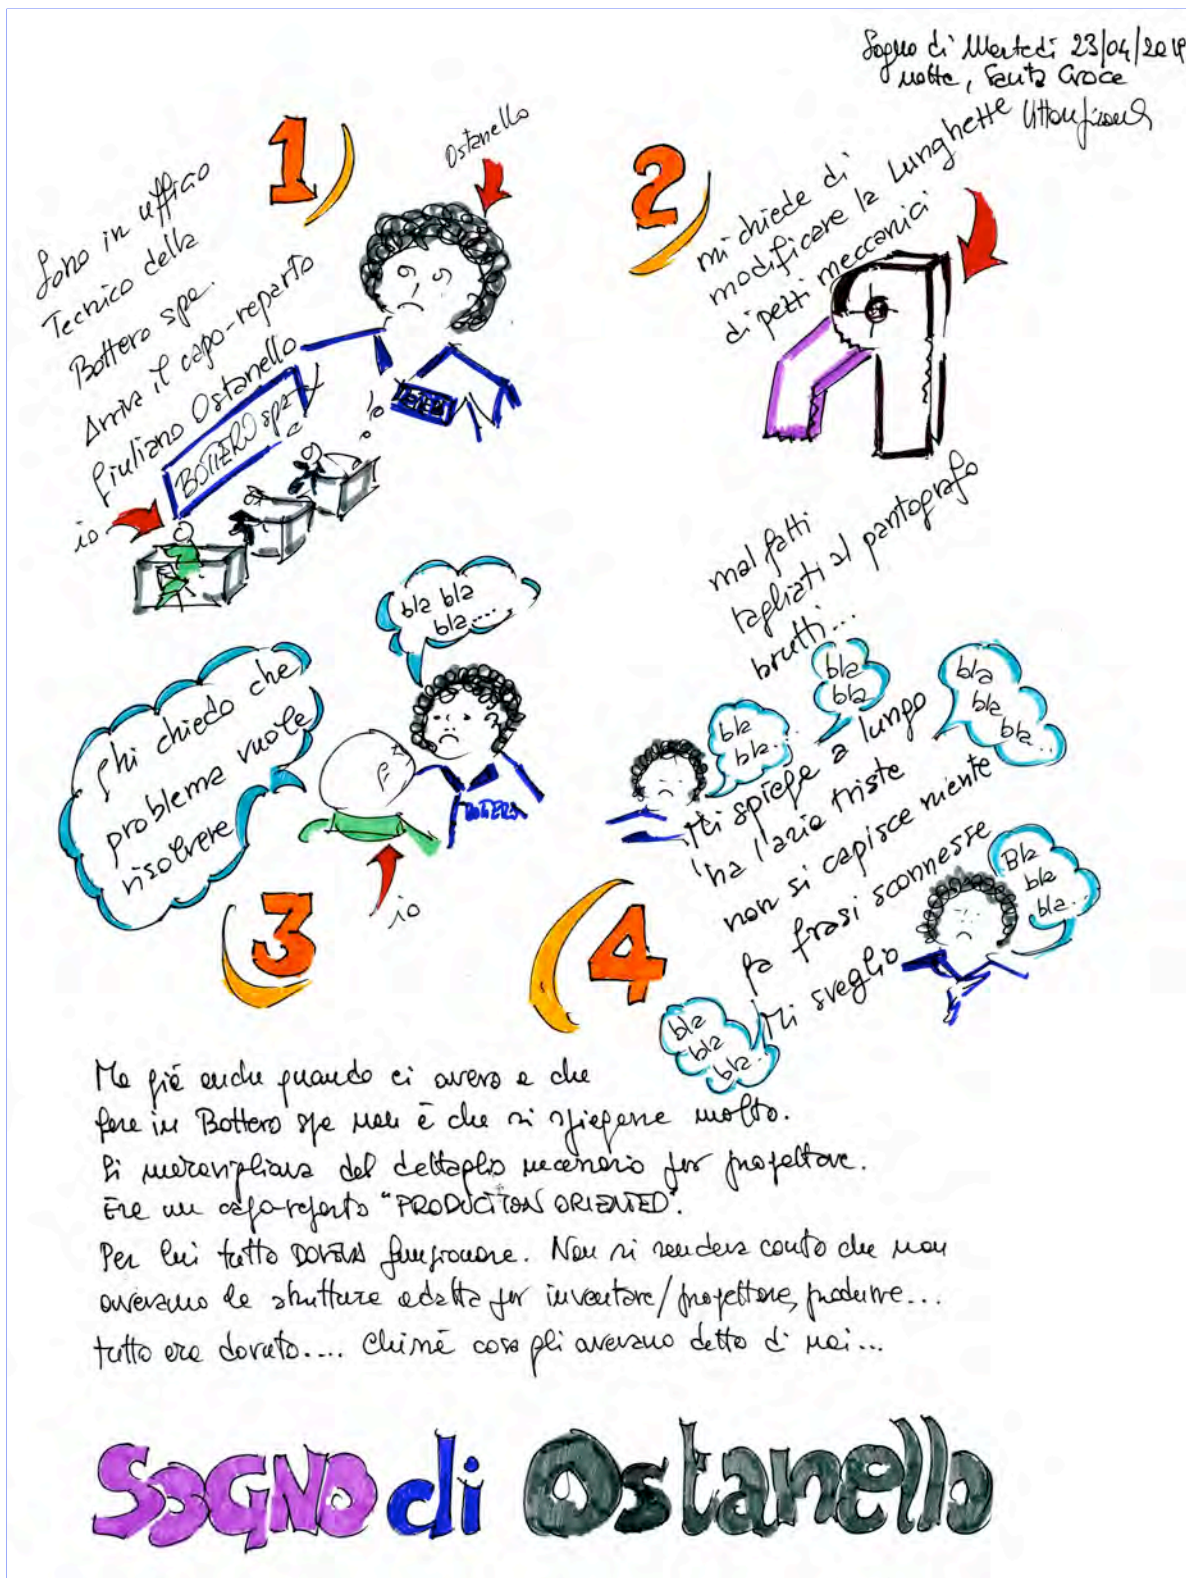 Sogno di Martedì 23/04/2019
notte, Santa Croce
1)
Ostanello
Sono in ufficio
Tecnico della
Bottero spa.
Arriva il capo-reparto
Giuliano Ostanello
BOTTERO spa
io
2)
mi chiede di
modificare la Lunghette
di pezzi meccanici
mal fatti
tagliati al pantografo
brutti...
bla bla
bla....
Ghi chiedo che
problema vuole
risolvere
BOTTERO
io
3
4
bla
bla...
bla
bla
bla
bla
bla...
Mi spiega a lungo
ha l'aria triste
non si capisce niente
fa frasi sconnesse
Mi sveglio
Bla
bla
bla...
bla
bla
bla..
Ma già anche quando ci avevo a che
fare in Bottero spa non è che si spiegasse molto.
Si meravigliava del dettaglio necessario per progettare.
Era un capo-reparto "PRODUCTION ORIENTED".
Per lui tutto DOVEVA funzionare. Non si rendeva conto che non
avevamo le strutture adatte per inventare/progettare, produrre...
tutto era dovuto.... Chissà cosa gli avevano detto di noi...
SOGNO di Ostanello